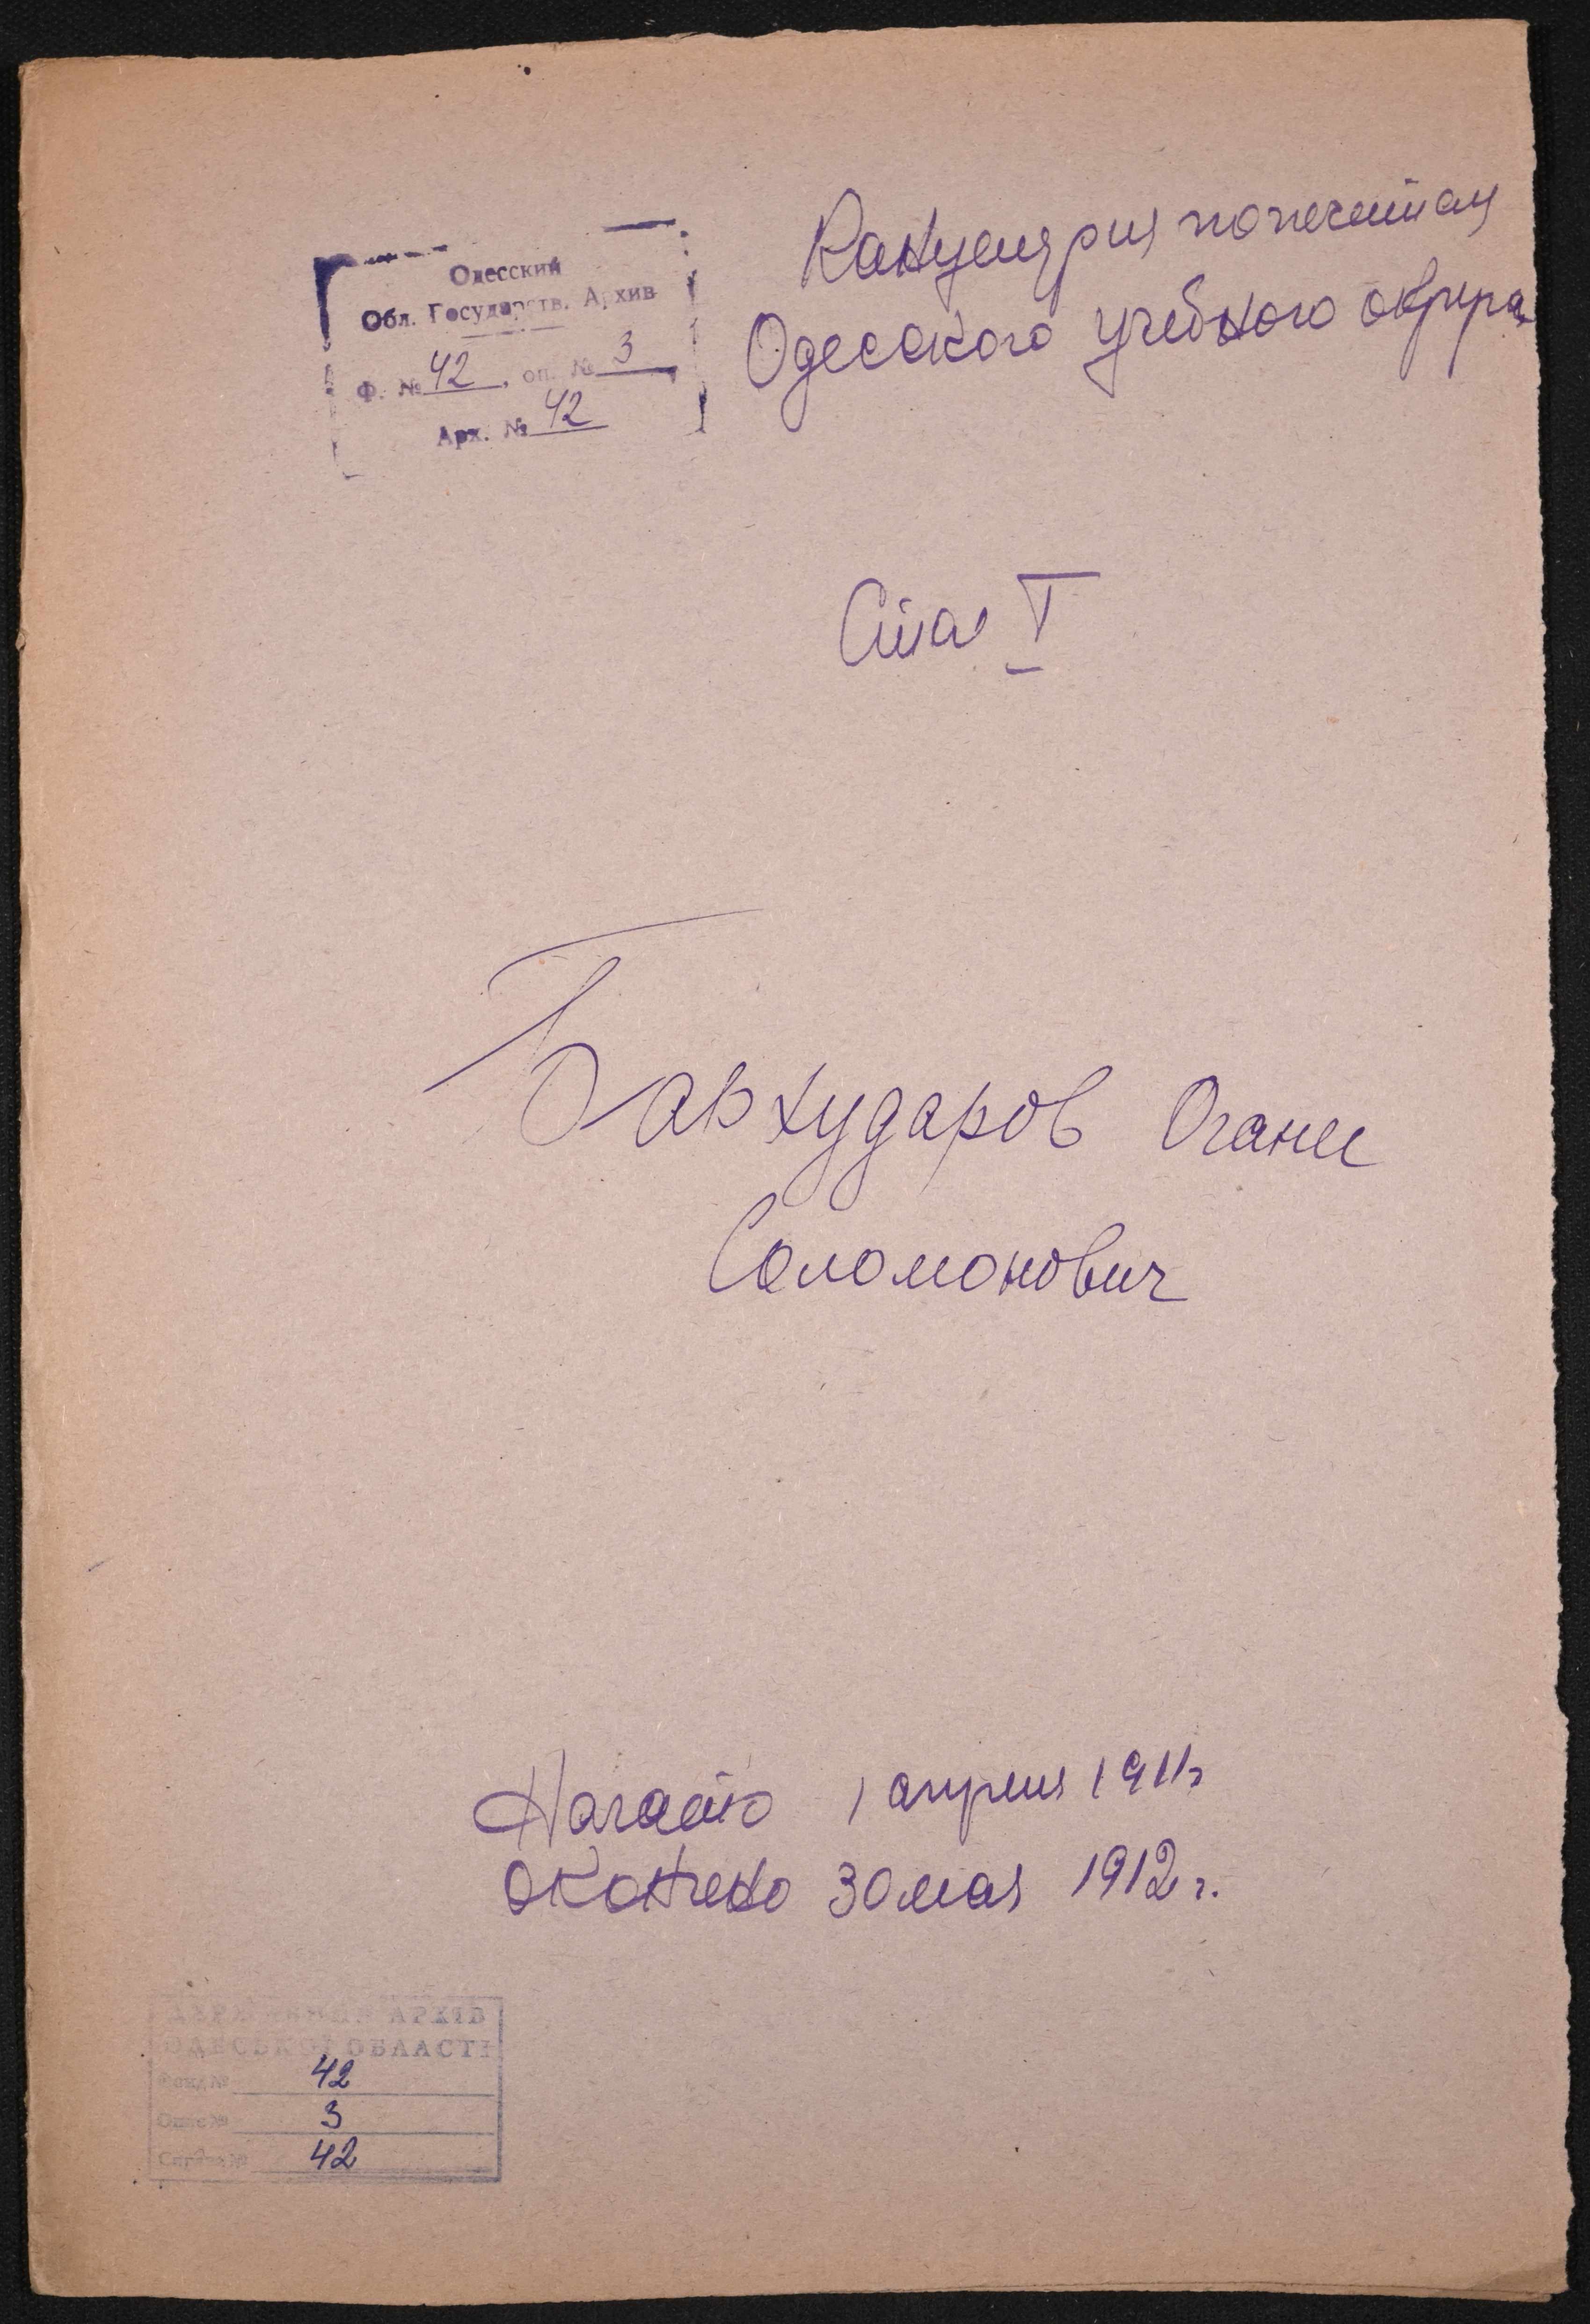 Одесский
Обл. Государств. Архив
Ф. № 42, оп. № 3
Арх. № 42
Канцелярия попечителя
Одесского учебного округа
Стол I
Бархударов Оганес
Соломонович
Начато 1 апреля 1911 г.
Окончено 30 мая 1912 г.
ДЕРЖАВНИЙ АРХІВ
ОДЕСЬКОЇ ОБЛАСТІ
Фонд № 42
Опис № 3
Справа № 42